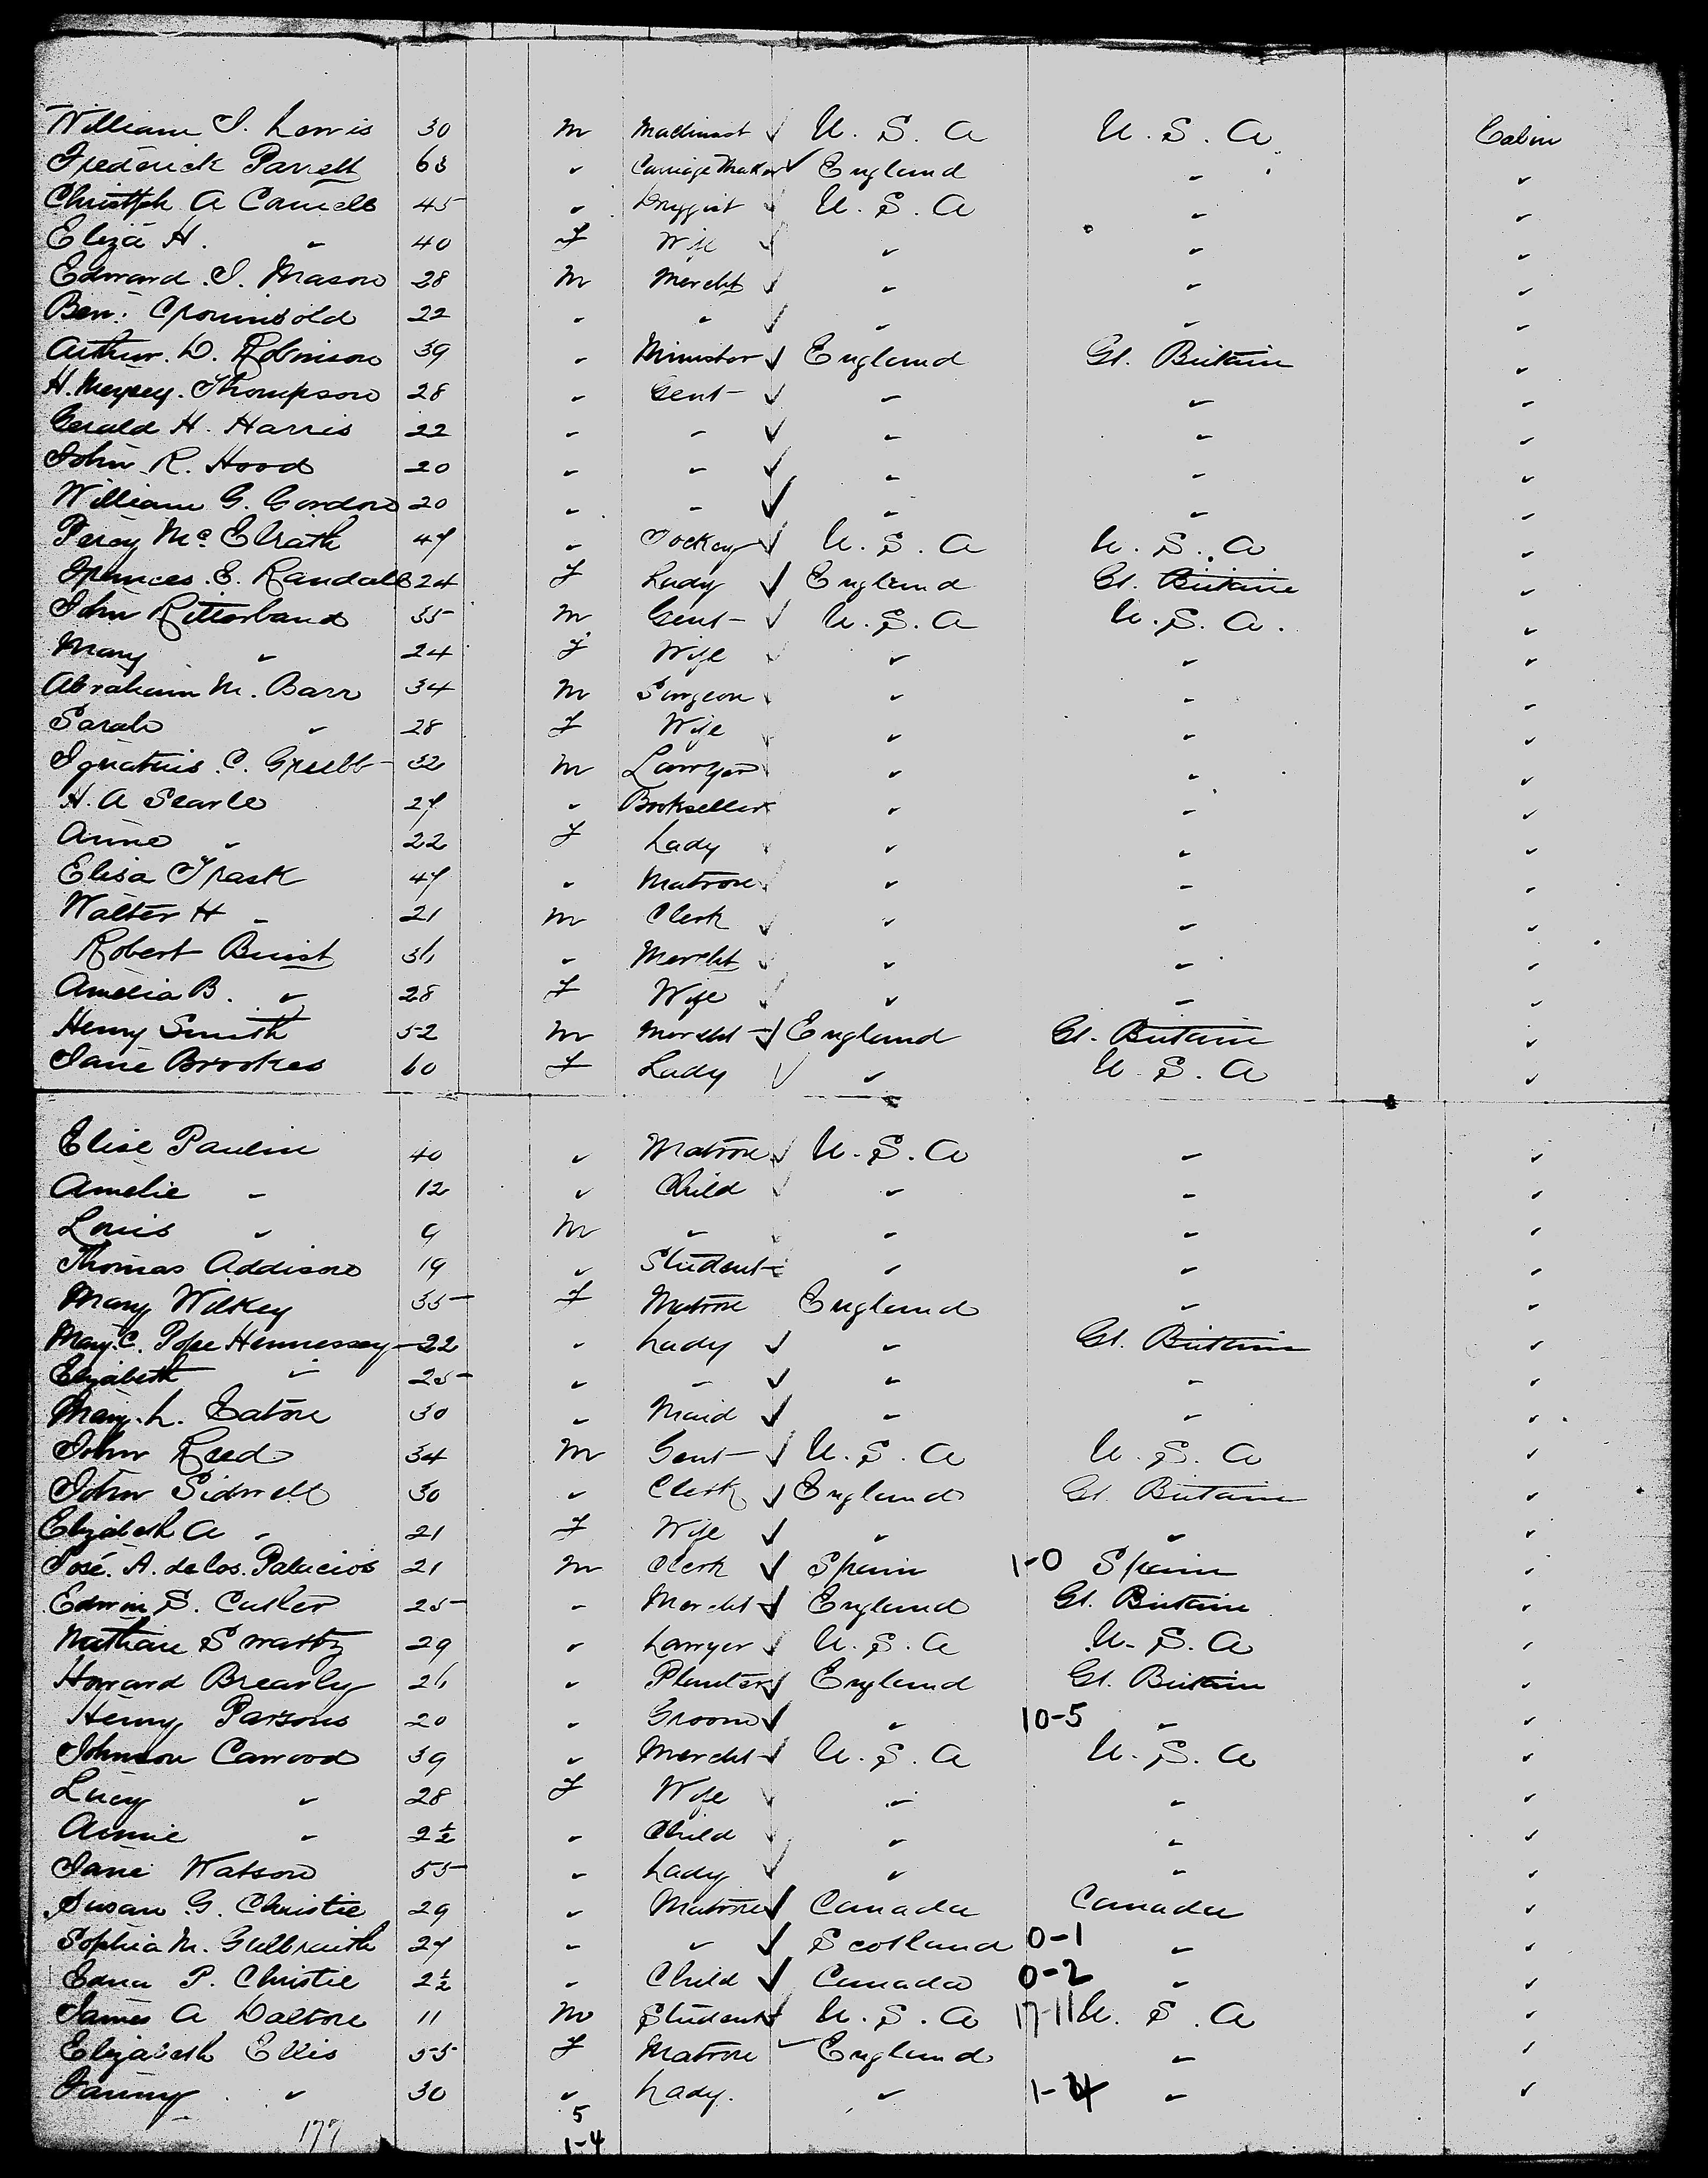 William I. Lewis 30 m Machinist ✓ U. S. A U. S. A Cabin
Frederick Parrell 63 " Carriage Maker ✓ England " "
Christph A Camells 45 " Druggist U. S. A " "
Eliza H. " 40 F Wife ✓ " " "
Edward. I. Mason 28 m Mercht ✓ " " "
Ben: 22 " " ✓ " " "
Arthur. D. Robinson 39 " Minister ✓ England Gt. Britain "
H. Meysey. Thompson 28 " Gent ✓ " " "
Gerald H. Harris 22 " " ✓ " " "
John R. Hood 20 " " ✓ " " "
William G. Gordon 20 " " ✓ " " "
Percy Mc Elrath 47 " Jockey ✓ U. S. A U. S. A "
Frances. E. Randall 24 F Lady ✓ England Gt. Britain "
John Ritterband 35 m Gent ✓ U. S. A U. S. A. "
Mary " 24 F Wife " " "
Abraham M. Barr 34 m Surgeon " " "
Sarah " 28 F Wife " " "
Ignatius. C. Grubb 32 m Lawyer " " "
H. A Searle 27 " Bookseller " " "
Anne " 22 F Lady " " "
Elisa Trask 47 " Matron " " "
Walter H " 21 m Clerk ✓ " " "
Robert Buist 36 " Mercht ✓ " " "
Amelia B. " 28 F Wife ✓ " " "
Henry Smith 52 m Mercht ✓ England Gt. Britain "
Jane Brookes 60 F Lady ✓ " U. S. A "
Elise Paulin 40 " Matron ✓ U. S. A " "
Amelie " 12 " Child ✓ " " "
Louis " 9 m " " " "
Thomas Addison 19 " Student " " "
Mary Wilkey 35 F Matron England " "
Mary. C. Pope Hennessey 22 " Lady ✓ " Gt. Britain "
Elizabeth " 25 " " ✓ " " "
Mary. L. Eaton 30 " Maid ✓ " " "
John Reed 34 m Gent ✓ U. S. A U. S. A "
John Sidwell 30 " Clerk ✓ England Gt. Britain "
Elizabeth A " 21 F Wife ✓ " " "
José. A. de los. Palacios 21 m Clerk ✓ Spain 1-0 Spain "
Edwin S. Cutler 25 " Mercht ✓ England Gt. Britain "
Nathan Swartz 29 " Lawyer ✓ U. S. A U. S. A "
Howard Brearly 26 " Planter ✓ England Gt. Britain "
Henry Parsons 20 " Groom ✓ " 10-5 " "
Johnson Cawood 39 " Mercht ✓ U. S. A U. S. A "
Lucy " 28 F Wife ✓ " " "
Annie " 2½ " Child ✓ " " "
Jane Watson 55 " Lady ✓ " " "
Susan G. Christie 29 " Matron ✓ Canada Canada "
Sophia M. Galbraith 27 " " ✓ Scotland 0-1 " "
Edna P. Christie 2½ " Child ✓ Canada 0-2 " "
James A Dalton 11 m Student ✓ U. S. A 17-11 U. S. A "
Elizabeth Ellis 55 F Matron ✓ England " "
Fanny " 30 " Lady. " 1-4 " "
5
177 1-4